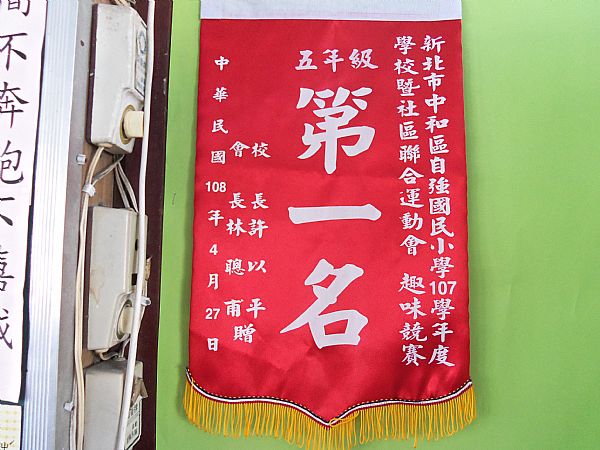 新北市中和區自強國民小學107學年度
學校暨社區聯合運動會 趣味競賽
五年級
第一名
校長許以平
會長林聰甫贈
中華民國108年4月27日
間不奔跑不嬉戲